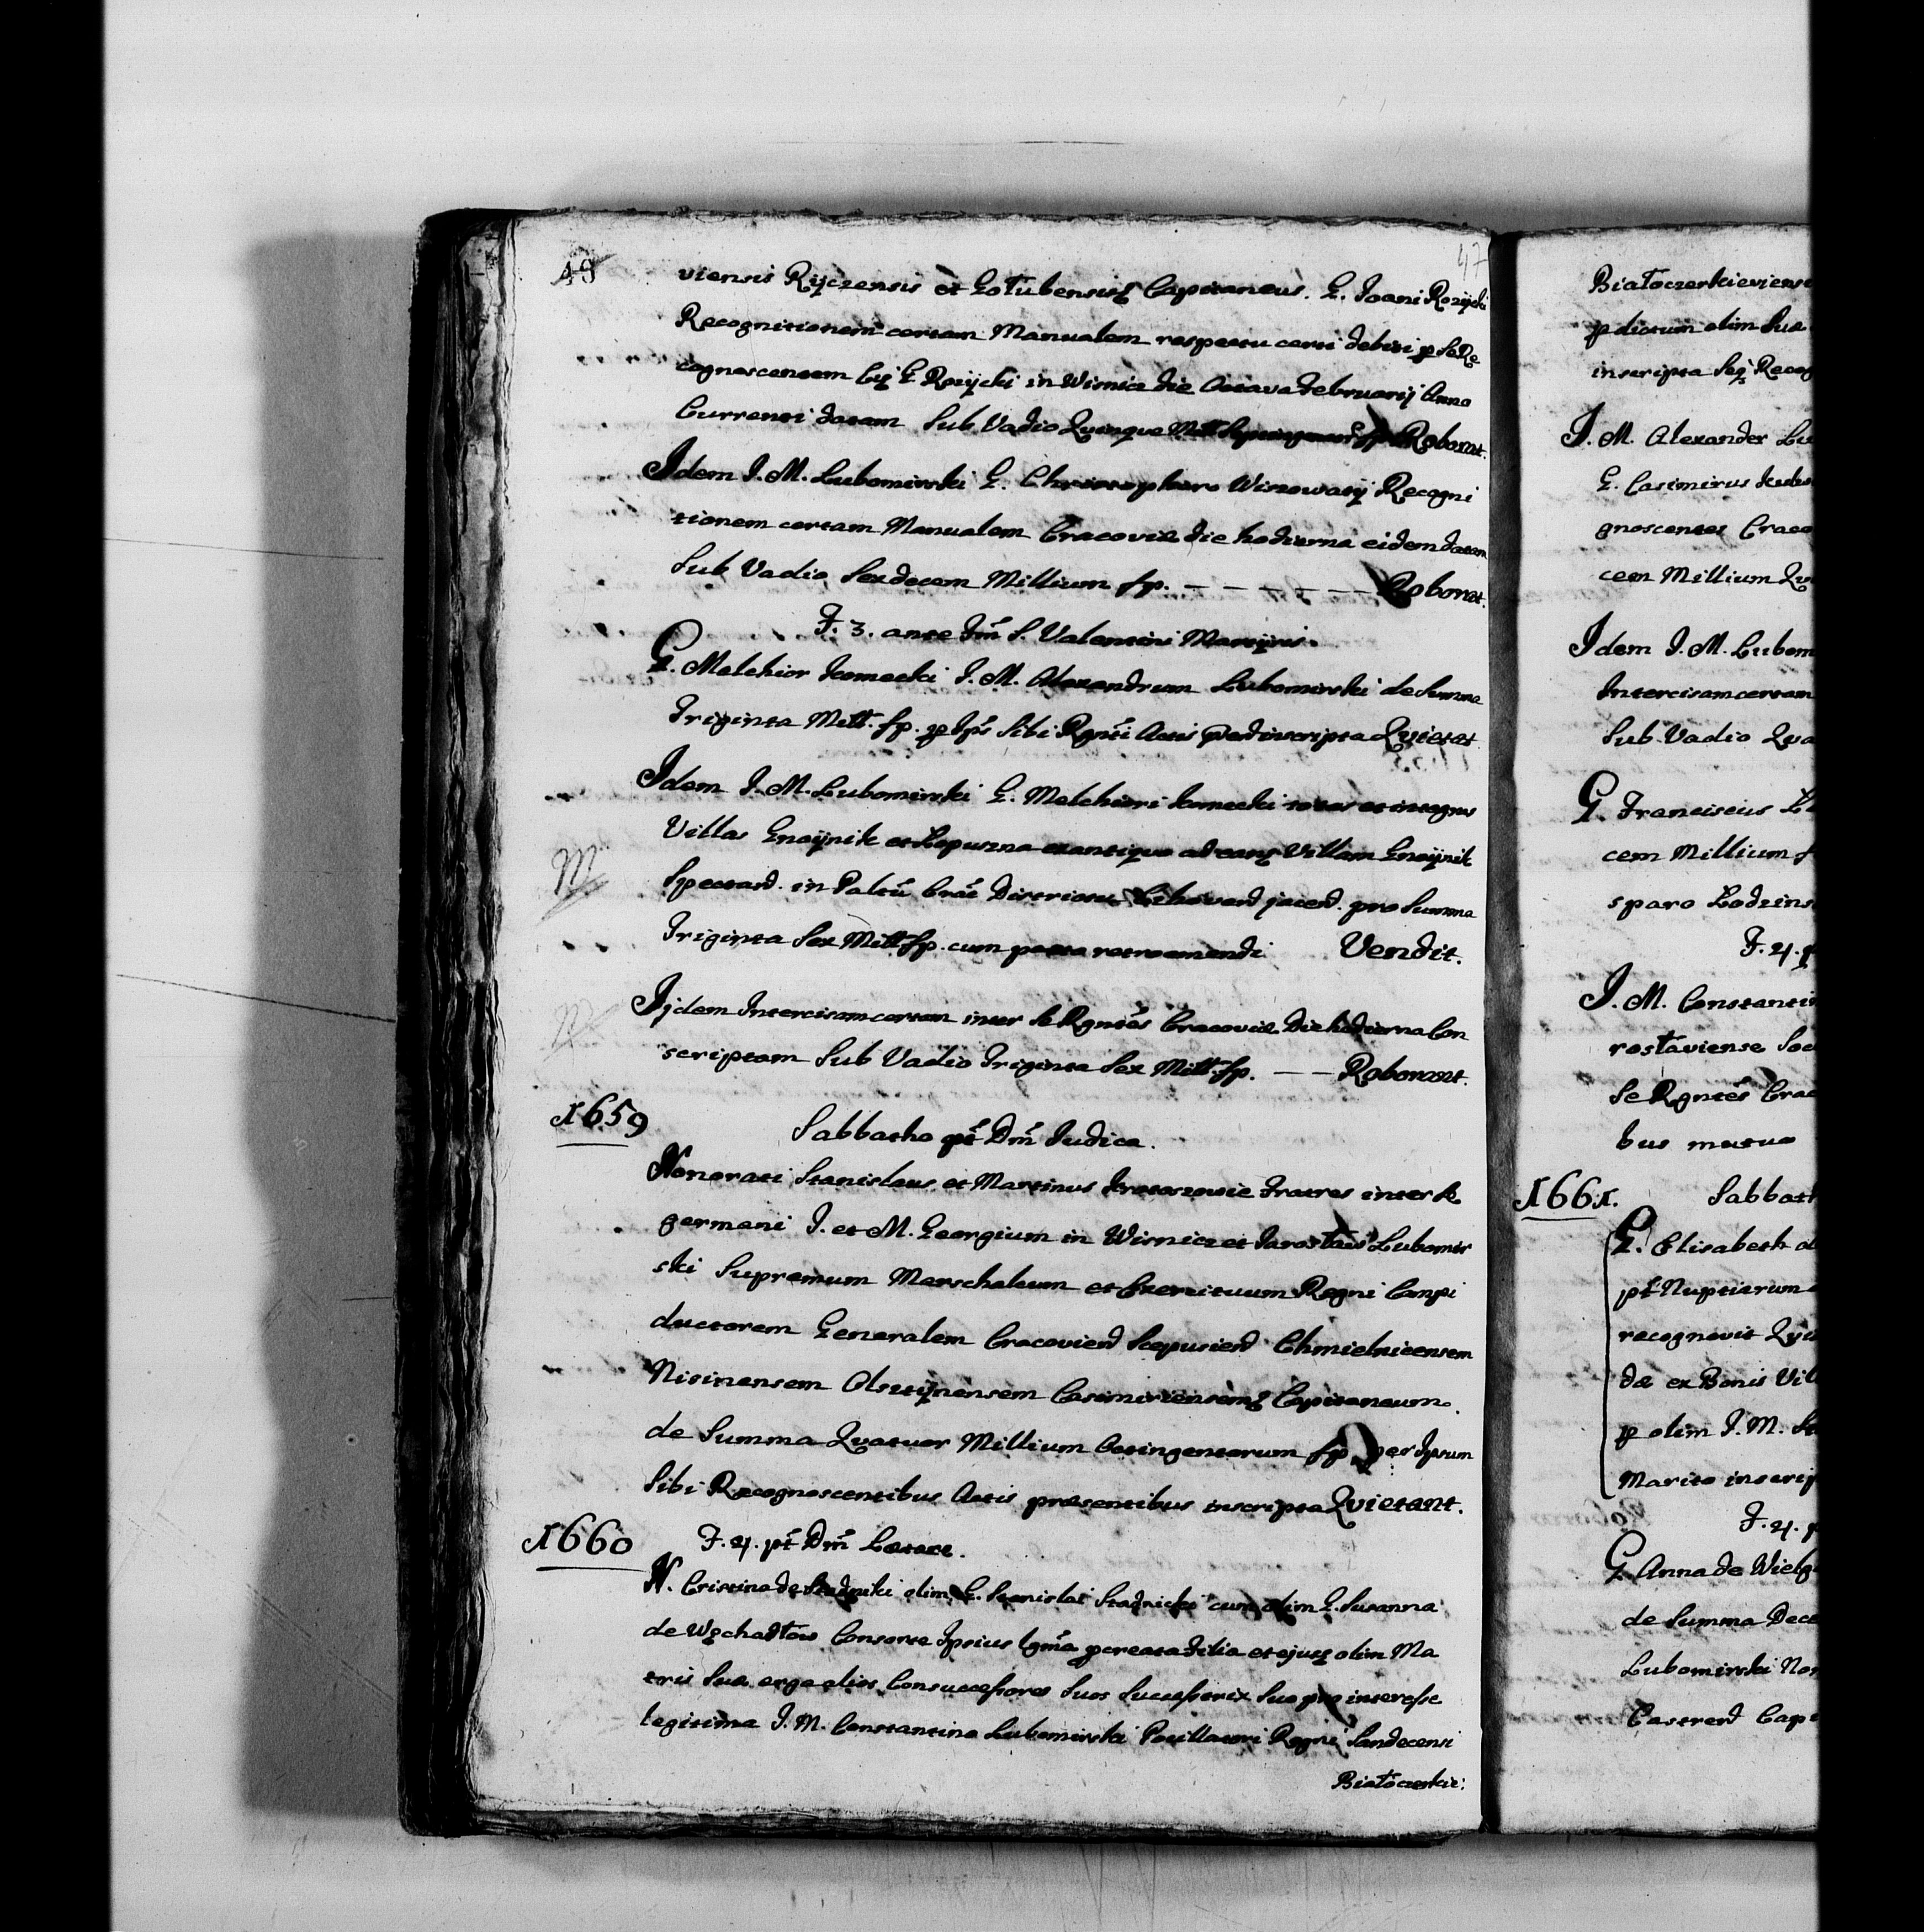 48
47
viensis Ryczensis et Gołubensisq Capitaneus. G. Joani Rożycki
Recognitionem certam Manualem respectu certi debiti p se Re
cognoscentem Cuq G. Rożycki in Wisnicz die Octava Februarij Anno
Currenti datam Sub Vadio Qvinqve Mill fp. Roborat.
Idem I. M. Lubomirski G. Christophoro Wiszowatÿ Recogni
tionem certam Manualem Cracoviæ die hodierna eidem datam
Sub Vadio Sexdecem Millium fp. – – – – – – Roborat.
F. 3. ante Fm S. Valentini Martyris.
G. Melchior Komecki I. M. Alexandrum Lubomirski de Summa
Triginta Mill. fp. p Ips Sibi Rgnti Actis inscripta Qvietat.
Idem I. M. Lubomirski G. Melchiori Komecki totas et integras
Villas Gnoÿnik et Lopuszna ex antiqvo ad eanq Villam Gnoÿnik
Spectand. in Paltu Crac Districtu jacend. pro Summa
Triginta Sex Mill fp. cum pacto retroemendi Vendit.
Ijdem Intercisam certam inter Se Rgntes Cracoviæ Die hodierna Con
scriptam Sub Vadio Triginta Sex Mill. fp. – – Roborant.
1659
Sabbatho pt Dm Judica.
Honorati Stanislaus et Martinus Fratres inter se
germani I. et M. Georgium in Wisnicz et Jarosław Lubomir
ski Supremum Marschalcum et Exercituum Regni Campi
ductorem Generalem Cracoviend Scepusiend Chmielnicensem
Nisinensem Olsztynensem Casimiriensemq Capitaneum.
de Summa Qvatuor Millium Octingentorum fp. per Ipsum
Sibi Recognoscentibus Actis præsentibus inscripta Qvietant.
1660
F. 4. pt Dm Lætare.
N. Cristina de Stadniki olim G. Stanislai Stadnicki cum olim G. Susanna
de Consorte Ipsius lgma pcreata Filia et ejusq olim Ma
tris Suæ erga alios Consuccessores Suos Successrix Suo pro interesse
legitima I. M. Constantino Lubomirski Pocillatori Regni Sandecensi
Białoczerkie:
Białoczerkieviens
pdictum olim Sua
inscripta Seq Recog
I. M. Alexander Lu
G. Casimirus
gnoscentes Craco
cem Millium Qv
Idem I. M. Lubom
Intercisam certam
Sub Vadio Qva
G. Franciscus
cem Millium
sparo Lodzins
F. 4. p
I. M. Constanti
rosłaviense Soc
Se Rgntes Crac
bus mutuo
1661. Sabbath
G. Elisabeth
pt Nuptiarum
recognovit Qvi
dæ ex Bonis Vil
p olim I. M. St
Marito inscrip
F. 4. p
G. Anna de Wielg
de Summa Dece
Lubomirski
Castrend Cap